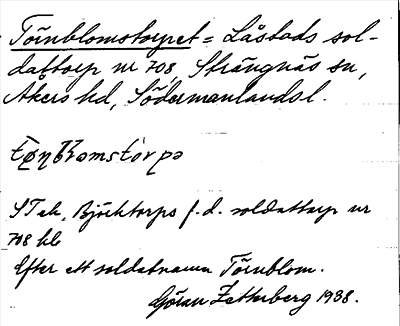 Törnblomstorpet = Låstads sol-
dattorp nr 708, Strängnäs sn,
Åkers hd, Södermanlands l.
STek, Björktorps f.d. soldattorp nr
708 kb
Efter ett soldatnamn Törnblom.
Göran Zetterberg 1938.